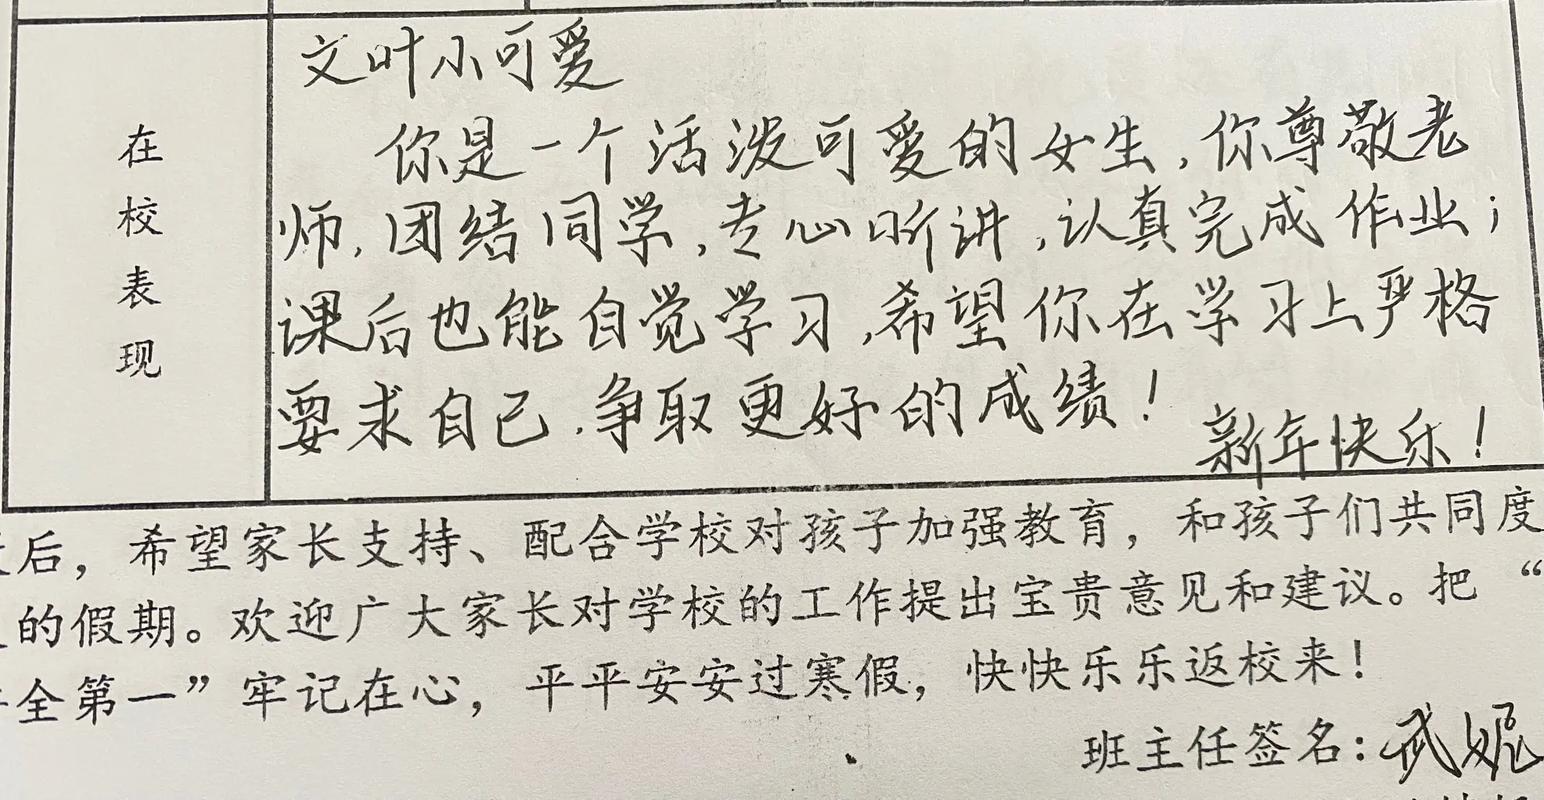 在校表现
文叶小可爱
你是一个活泼可爱的女生,你尊敬老
师,团结同学,专心听讲,认真完成作业;
课后也能自觉学习,希望你在学习上严格
要求自己.争取更好的成绩!
新年快乐!
后，希望家长支持、配合学校对孩子加强教育，和孩子们共同度
的假期。欢迎广大家长对学校的工作提出宝贵意见和建议。把“
全第一”牢记在心，平平安安过寒假，快快乐乐返校来！
班主任签名：武妮